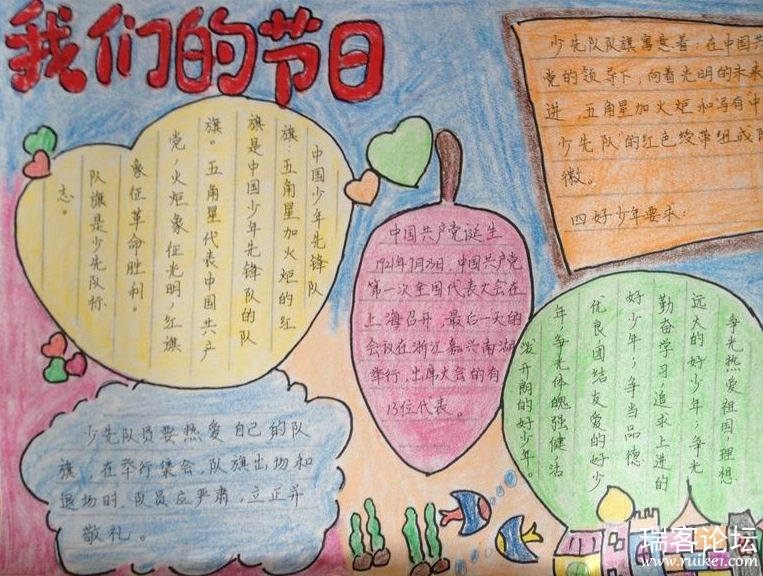 我们的节日
中国少年先锋队
旗:五角星加火炬的红
旗是中国少年先锋队的队
旗。五角星代表中国共产
党，火炬象征光明，红旗
象征革命胜利。
队旗是少先队标
志。
中国共产党诞生
1921年7月23日，中国共产党
第一次全国代表大会在
上海召开，最后一天的
会议在浙江嘉兴南湖
举行，出席大会的有
13位代表。
少先队队旗寓意着：在中国共
党的领导下，向着光明的未来
进，五角星加火炬和写有"中
少先队"的红色绶带组成队
徽。
四好少年要求：
争光热爱祖国，理想
远大的好少年；争光
勤奋学习，追求上进的
好少年；争当品德
优良，团结友爱的好少
年；争光体魄强健，活
泼开朗的好少年。
少先队员要热爱自己的队
旗，在举行集会，队旗出场和
退场时，队员应严肃，立正并
敬礼。
瑞客论坛
www.ruikei.com